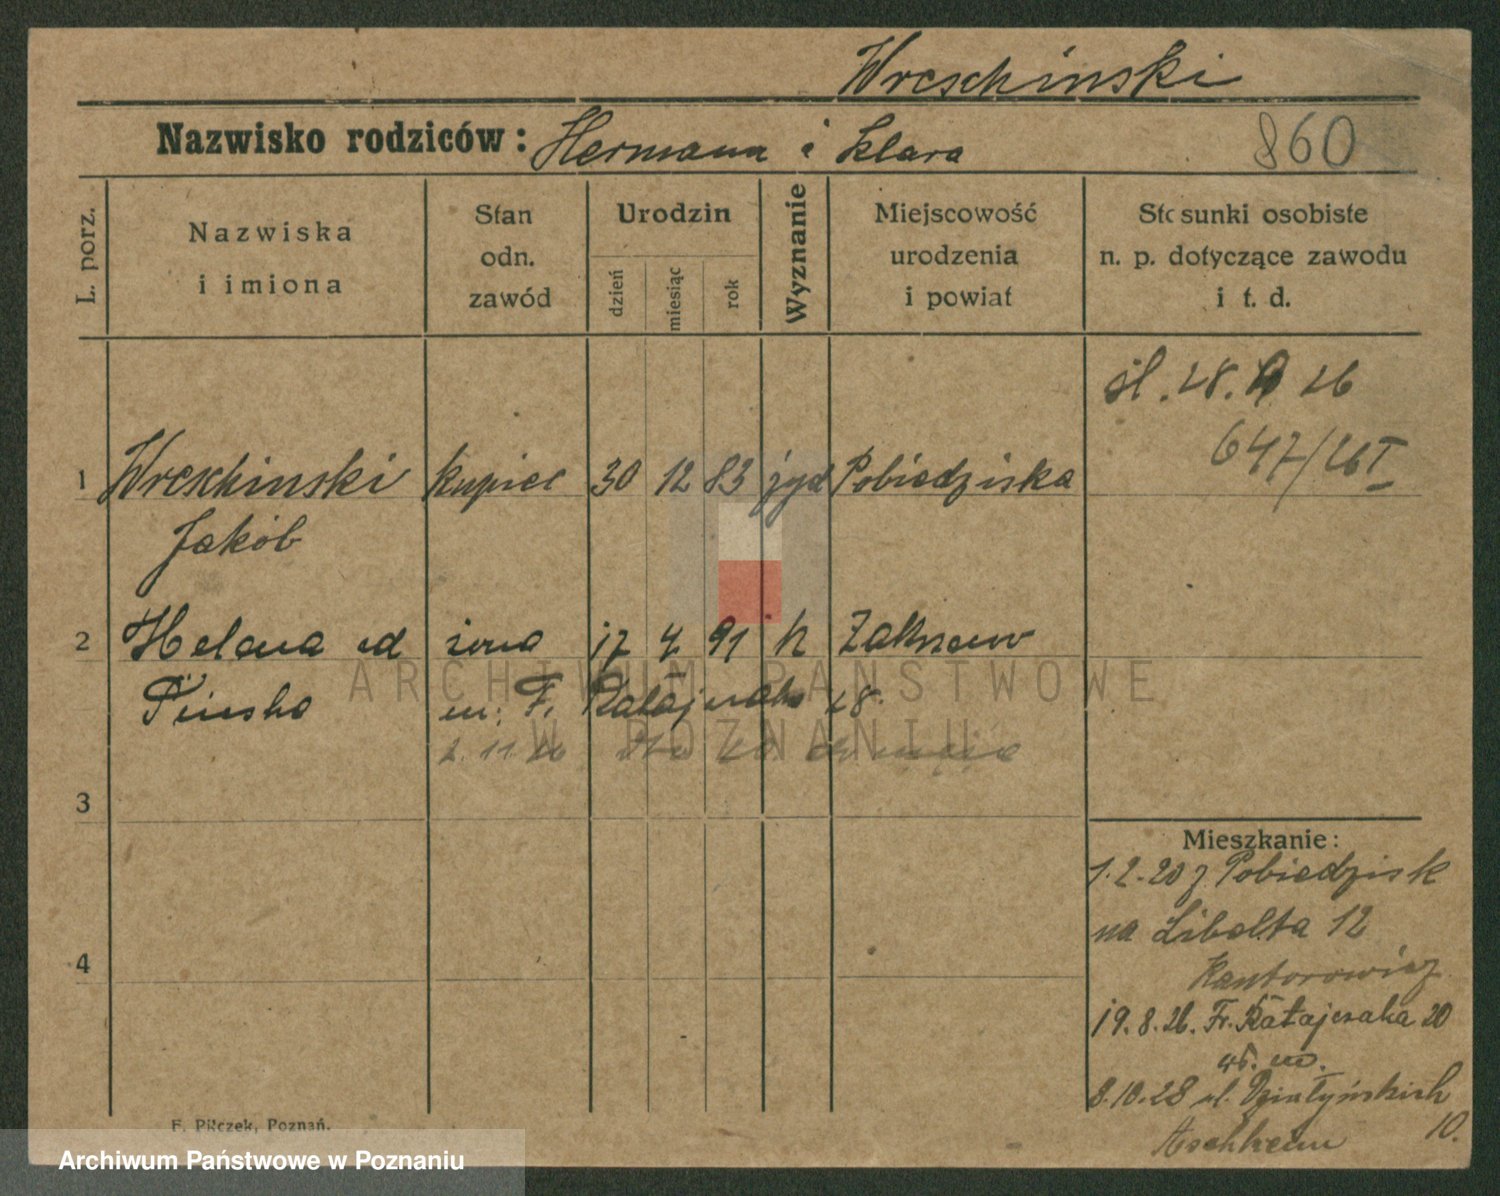 Wreschinski
Nazwisko rodziców: Hermann i Klara 860
L. porz.
Nazwiska
i imiona
Stan
odn.
zawód
Urodzin
dzień
miesiąc
rok
Wyznanie
Miejscowość
urodzenia
i powiat
Stosunki osobiste
n. p. dotyczące zawodu
i t. d.
śl. 28. 26
647/26 I
1 Wreschinski kupiec 30 12 83 żyd Pobiedziska
Jakób
2 Helena żona 17 4 91 Zakrzew
F. Ratajczaka 18.
2. 11. 26
3
4
Mieszkanie:
1.2.20 z Pobiedzisk
na Libelta 12
Kantorowicz
19.8.26. Fr. Ratajczaka 20
wł. m.
8.10.28 ul. Działyńskich
10.
Aschheim
F. Pilczek, Poznań.
ARCHIWUM PAŃSTWOWE
W POZNANIU
Archiwum Państwowe w Poznaniu